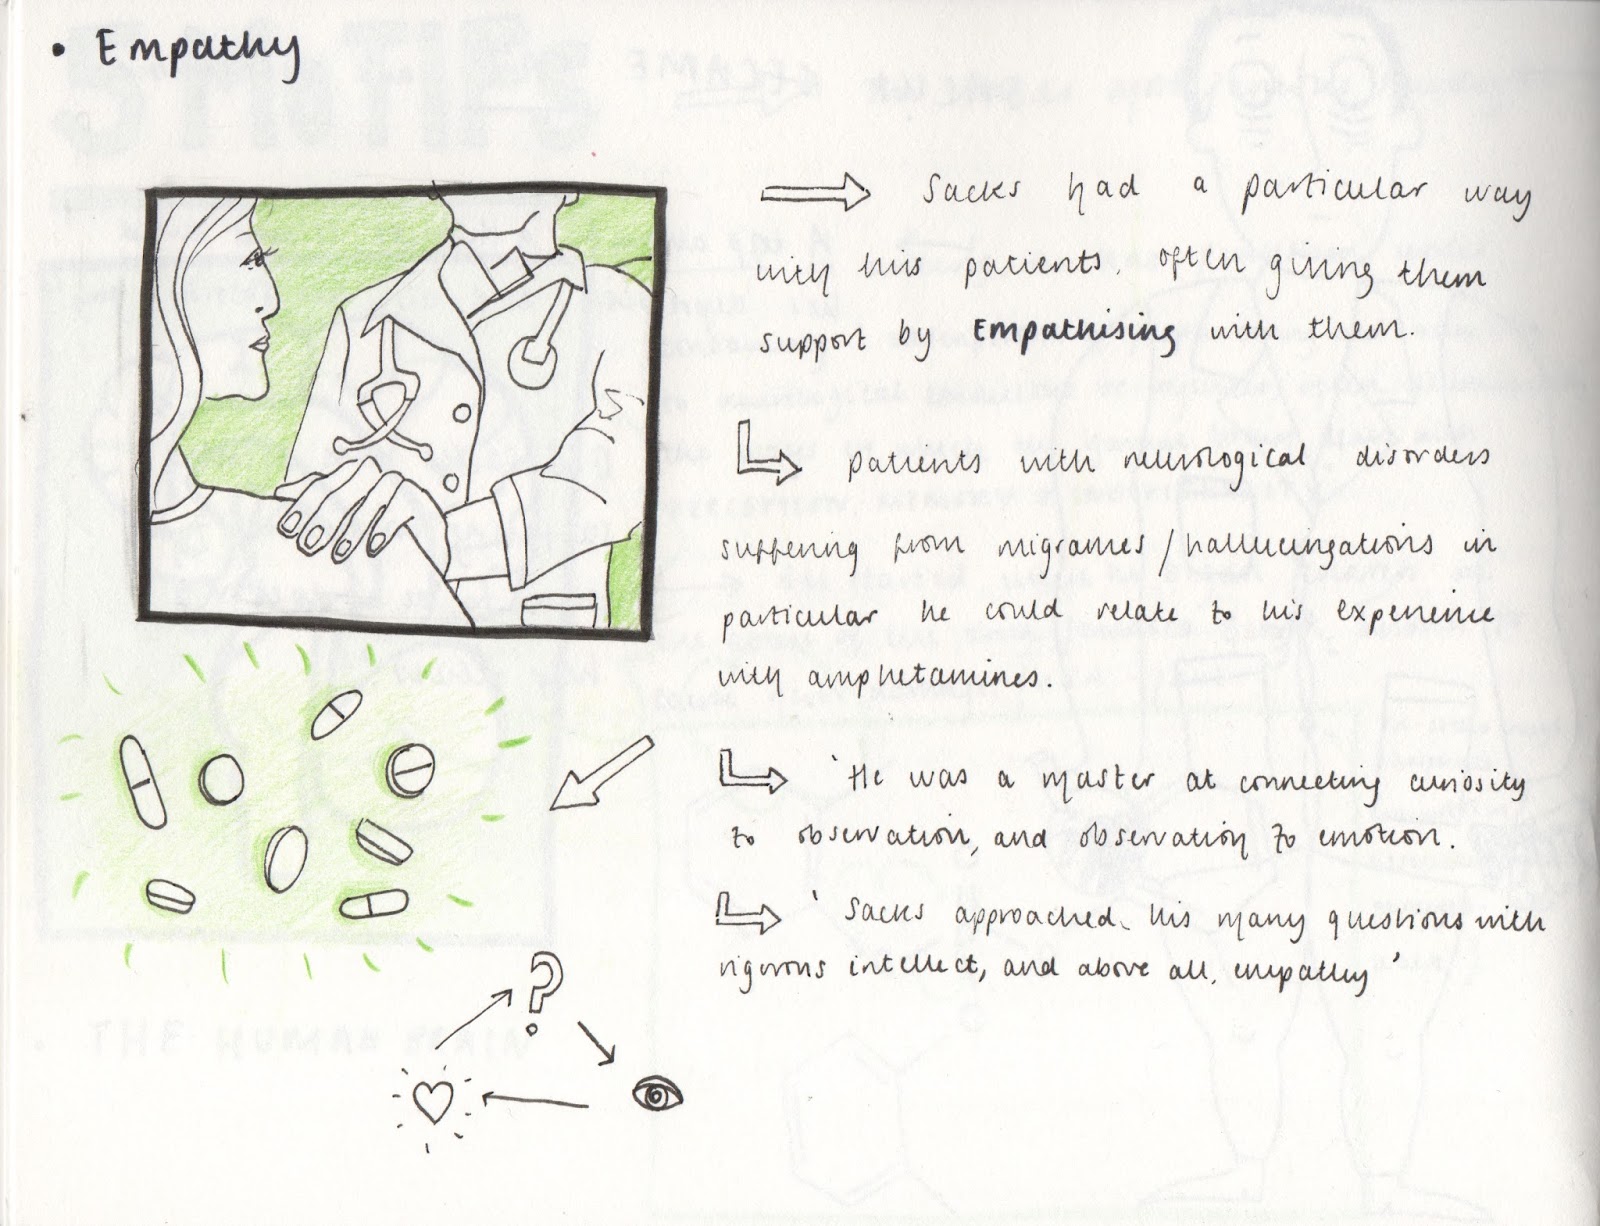 • Empathy
Sacks had a particular way
with his patients, often giving them
support by Empathising with them.
patients with neurological disorders
suffering from migraines / hallucingations in
particular he could relate to his experience
with amphetamines.
'He was a master at connecting curiosity
to observation, and observation to emotion.
'Sacks approached his many questions with
rigorous intellect, and above all, empathy'
• THE HUMAN BRAIN